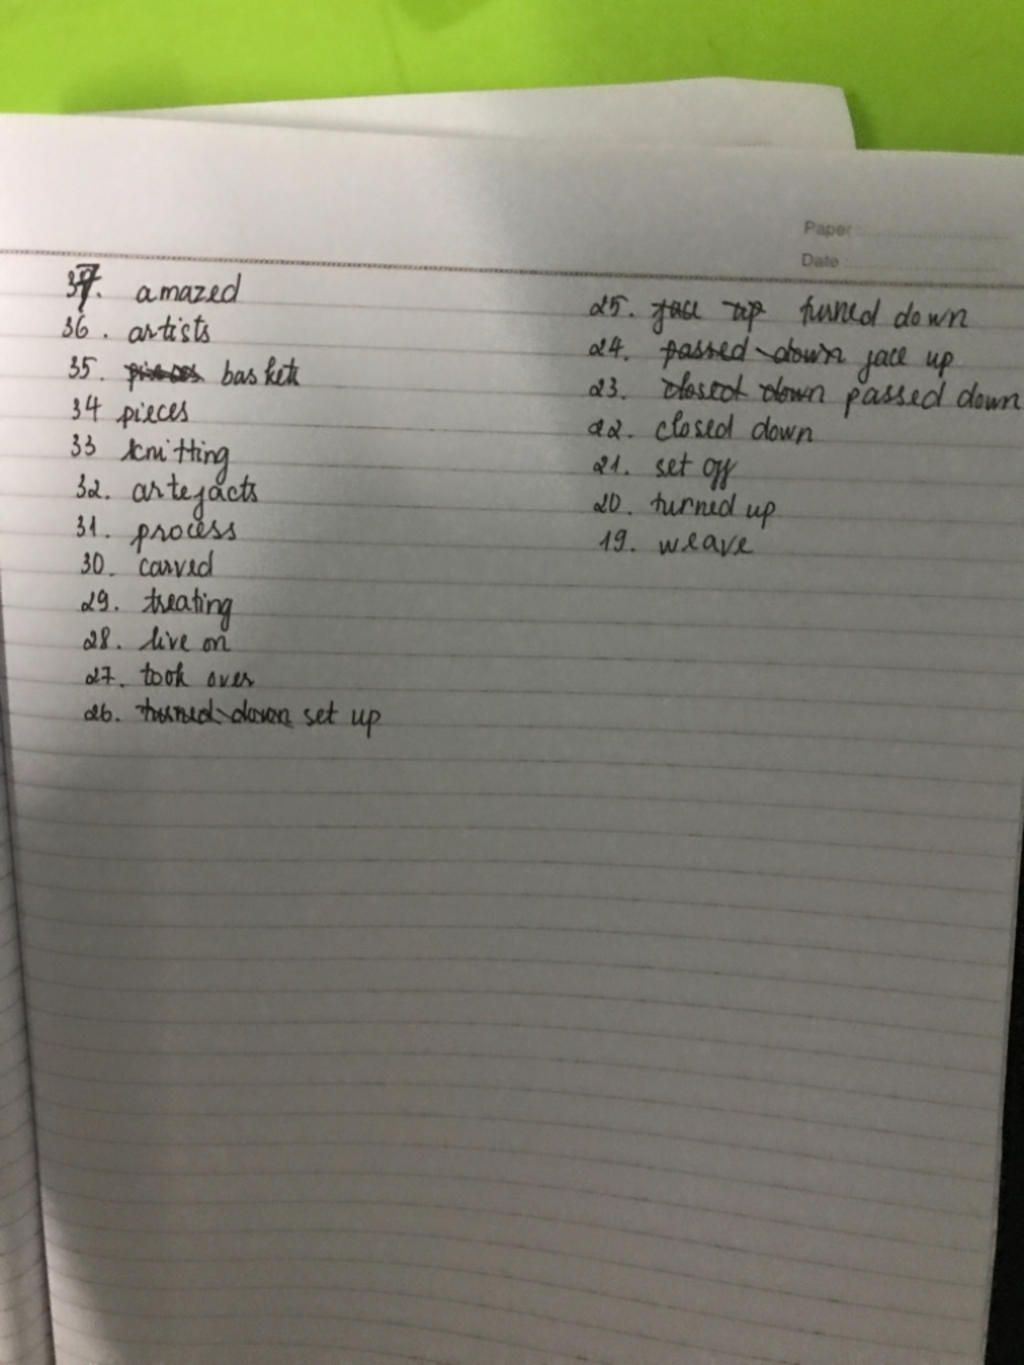 Paper
Date
37. amazed
36. artists
35. pieces baskets
34 pieces
33 knitting
32. artefacts
31. process
30. carved
29. treating
28. live on
27. took over
26. turned down set up
25. face up turned down
24. passed down face up
23. closed down passed down
22. closed down
21. set off
20. turned up
19. weave